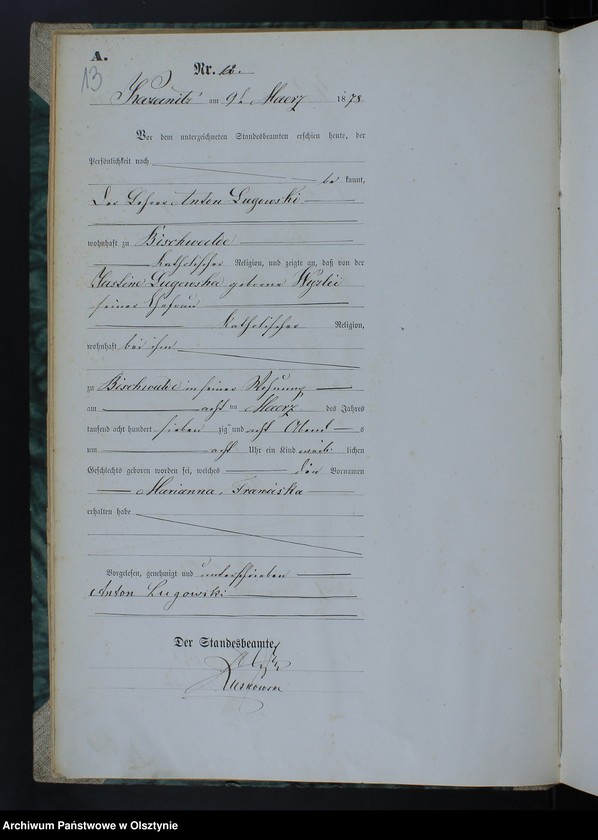 A.
13
Nr. 12.
Kazanitz am 9t Maerz 1878
Vor dem unterzeichneten Standesbeamten erschien heute, der
Persönlichkeit nach
be kannt,
Der Lehrer Anton Lugowski
wohnhaft zu Bischwalde
katholischer Religion, und zeigte an, daß von der
Lugowska geborene
seiner Ehefrau
katholischer Religion,
wohnhaft bei ihm
zu Bischwalde in seiner Wohnung
am acht ten Maerz des Jahres
tausend acht hundert sieben zig und acht Abend s
um acht Uhr ein Kind weib lichen
Geschlechts geboren worden sei, welches den Vornamen
Marianna, Franciska
erhalten habe
Vorgelesen, genehmigt und unterschrieben
Anton Lugowski
Der Standesbeamte
Archiwum Państwowe w Olsztynie